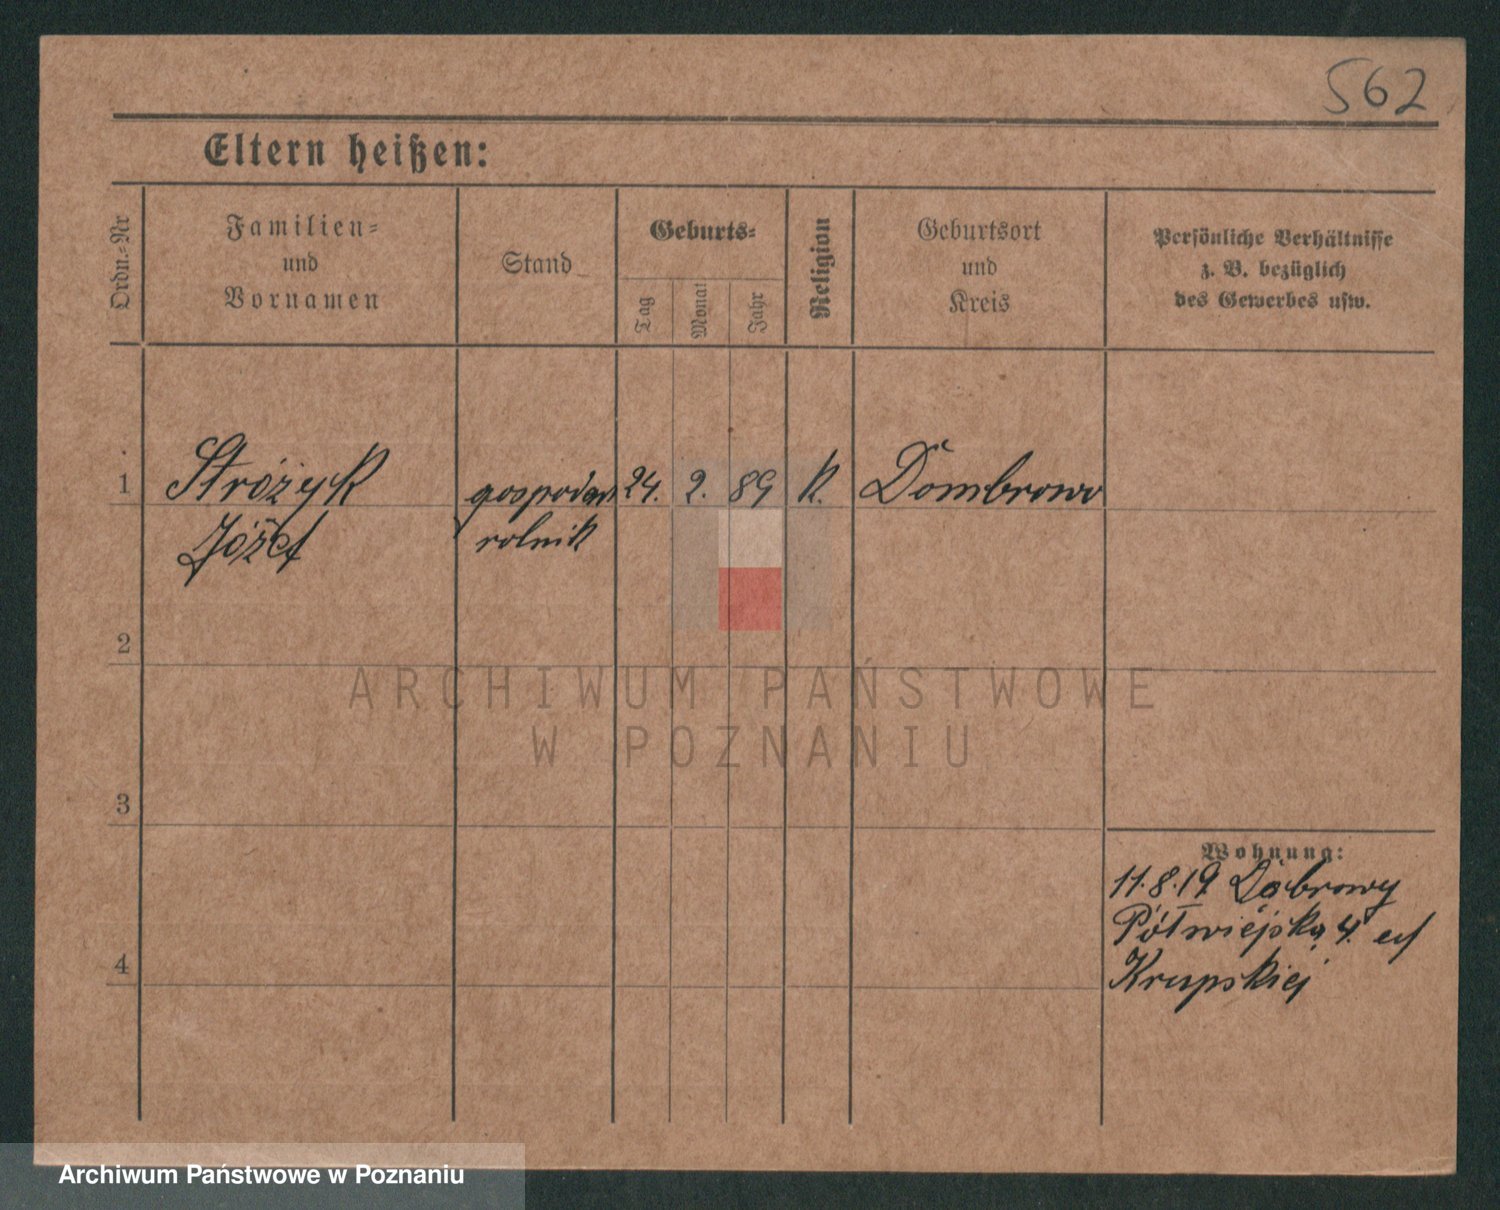 562
Eltern heißen:
Ordn.-Nr
Familien-
und
Vornamen
Stand
Geburts-
Tag
Monat
Jahr
Religion
Geburtsort
und
Kreis
Persönliche Verhältnisse
z. B. bezüglich
des Gewerbes usw.
1
Stróżyk
gospodarz
24.
2.
89
K.
Dombrowo
Józef
rolnik
2
ARCHIWUM PAŃSTWOWE
W POZNANIU
3
Wohnung:
11.8.19 Dąbrowy
Półwiejska 4.
4
Krupskiej
Archiwum Państwowe w Poznaniu